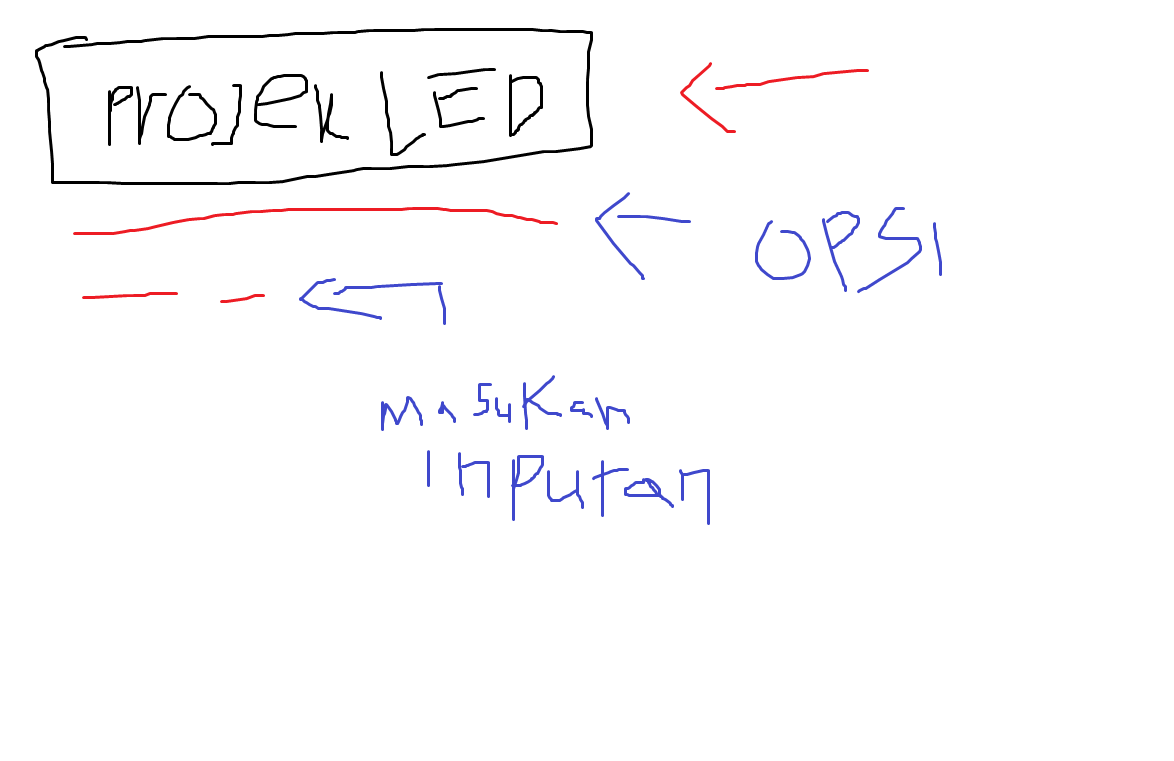 ProJek LED
OPSI
Masukan
Inputan